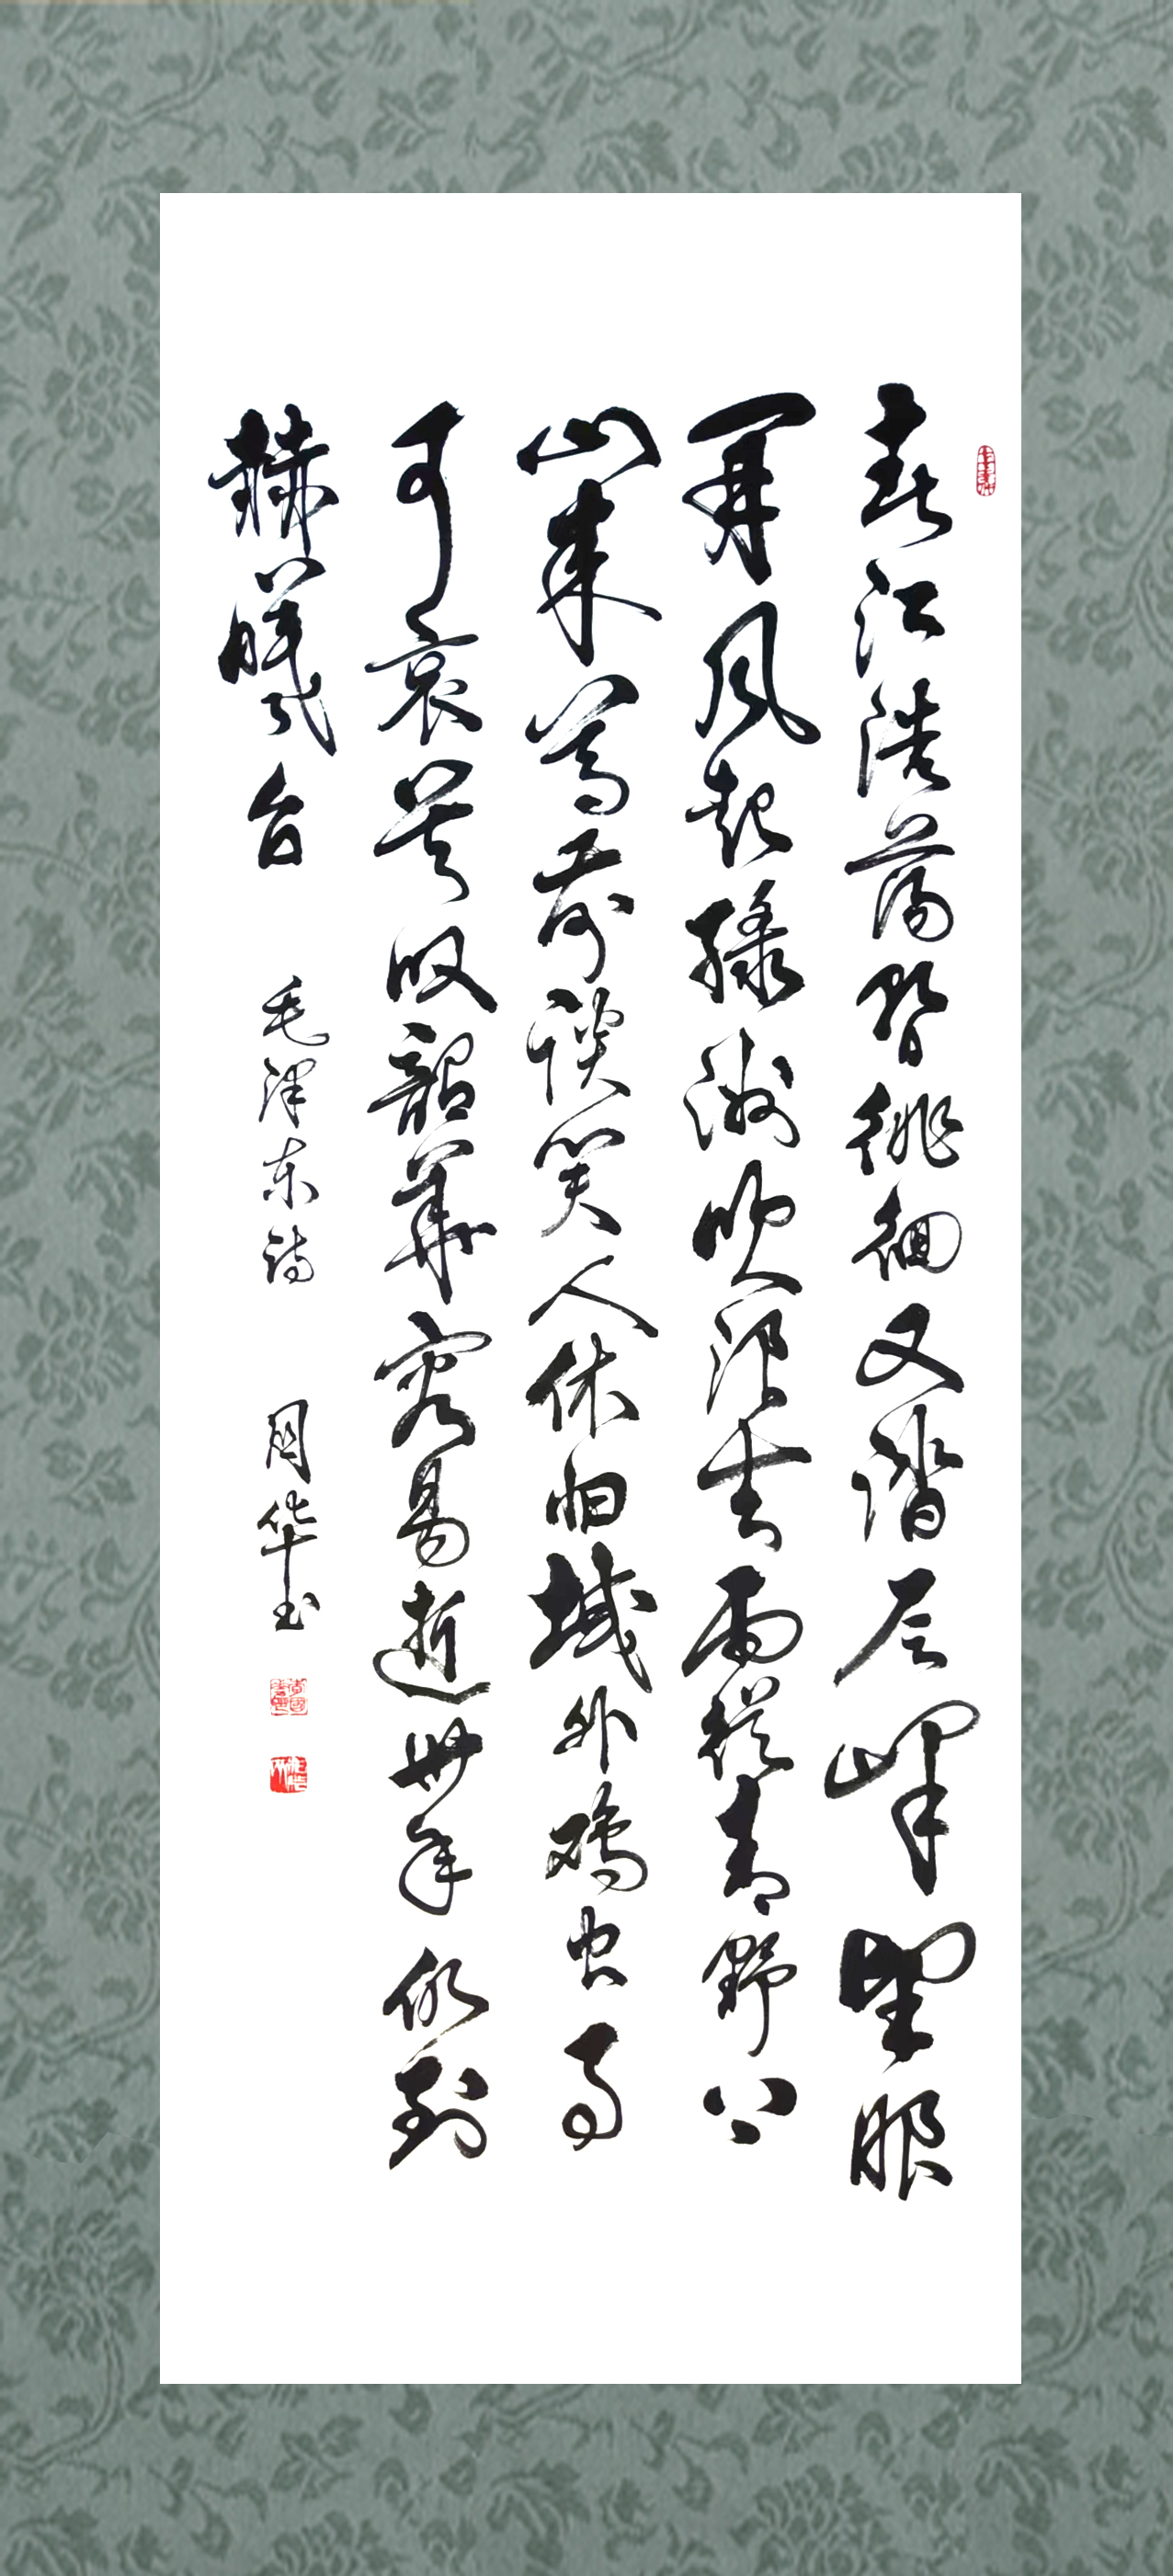 春江浩荡暂徘徊又踏层峰望眼
开风起绿洲吹浪去雨從青野上
山来尊前谈笑人依旧域外鸡虫事
可哀莫叹韶華容易逝卅年仍到
赫曦台 毛泽东诗 周华玉